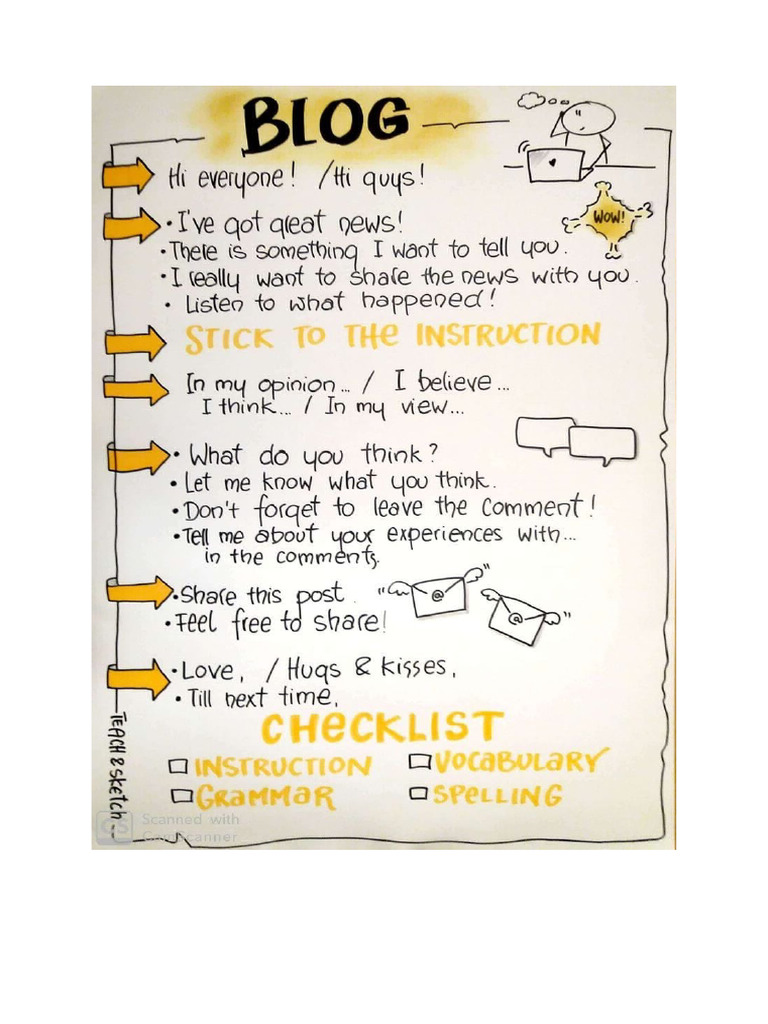 BLOG
Hi everyone! / Hi guys!
• I've got great news!
WOW!
• There is something I want to tell you.
• I really want to share the news with you.
• Listen to what happened!
STICK TO THE INSTRUCTION
In my opinion... / I believe...
I think... / In my view...
• What do you think?
• Let me know what you think.
• Don't forget to leave the comment!
• Tell me about your experiences with...
in the comments.
• Share this post.
"@"
• Feel free to share!
"@"
• Love, / Hugs & kisses,
• Till next time,
CHECKLIST
INSTRUCTION
VOCABULARY
GRAMMAR
SPELLING
TEACH & SKETCH
CS Scanned with
CamScanner